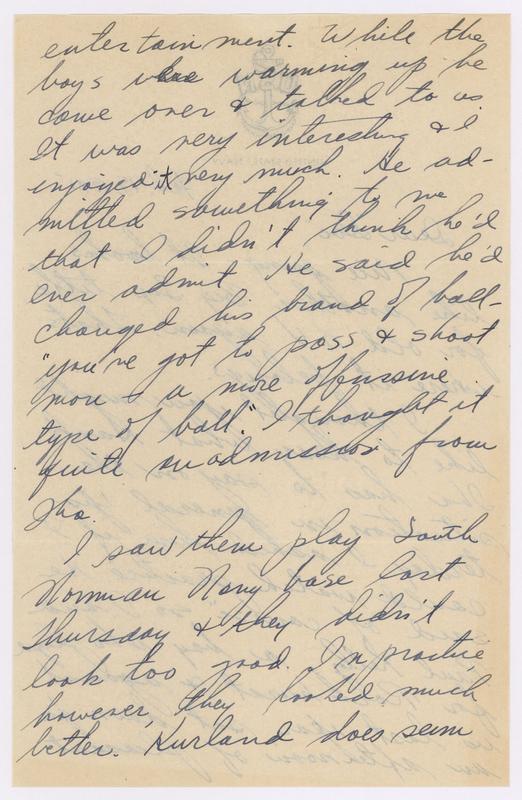 entertainment. While the
boys were warming up he
come over & talked to us.
It was very interesting & I
enjoyed it very much. He ad-
mitted something to me
that I didn't think he'd
ever admit. He said he'd
changed his brand of ball-
"you've got to pass & shoot
more & a more offensive
type of ball." I thought it
quite an admission from
Iba.
I saw them play South
Norman Navy base last
Thursday & they didn't
look too good. In practice,
however, they looked much
better. Kurland does seem